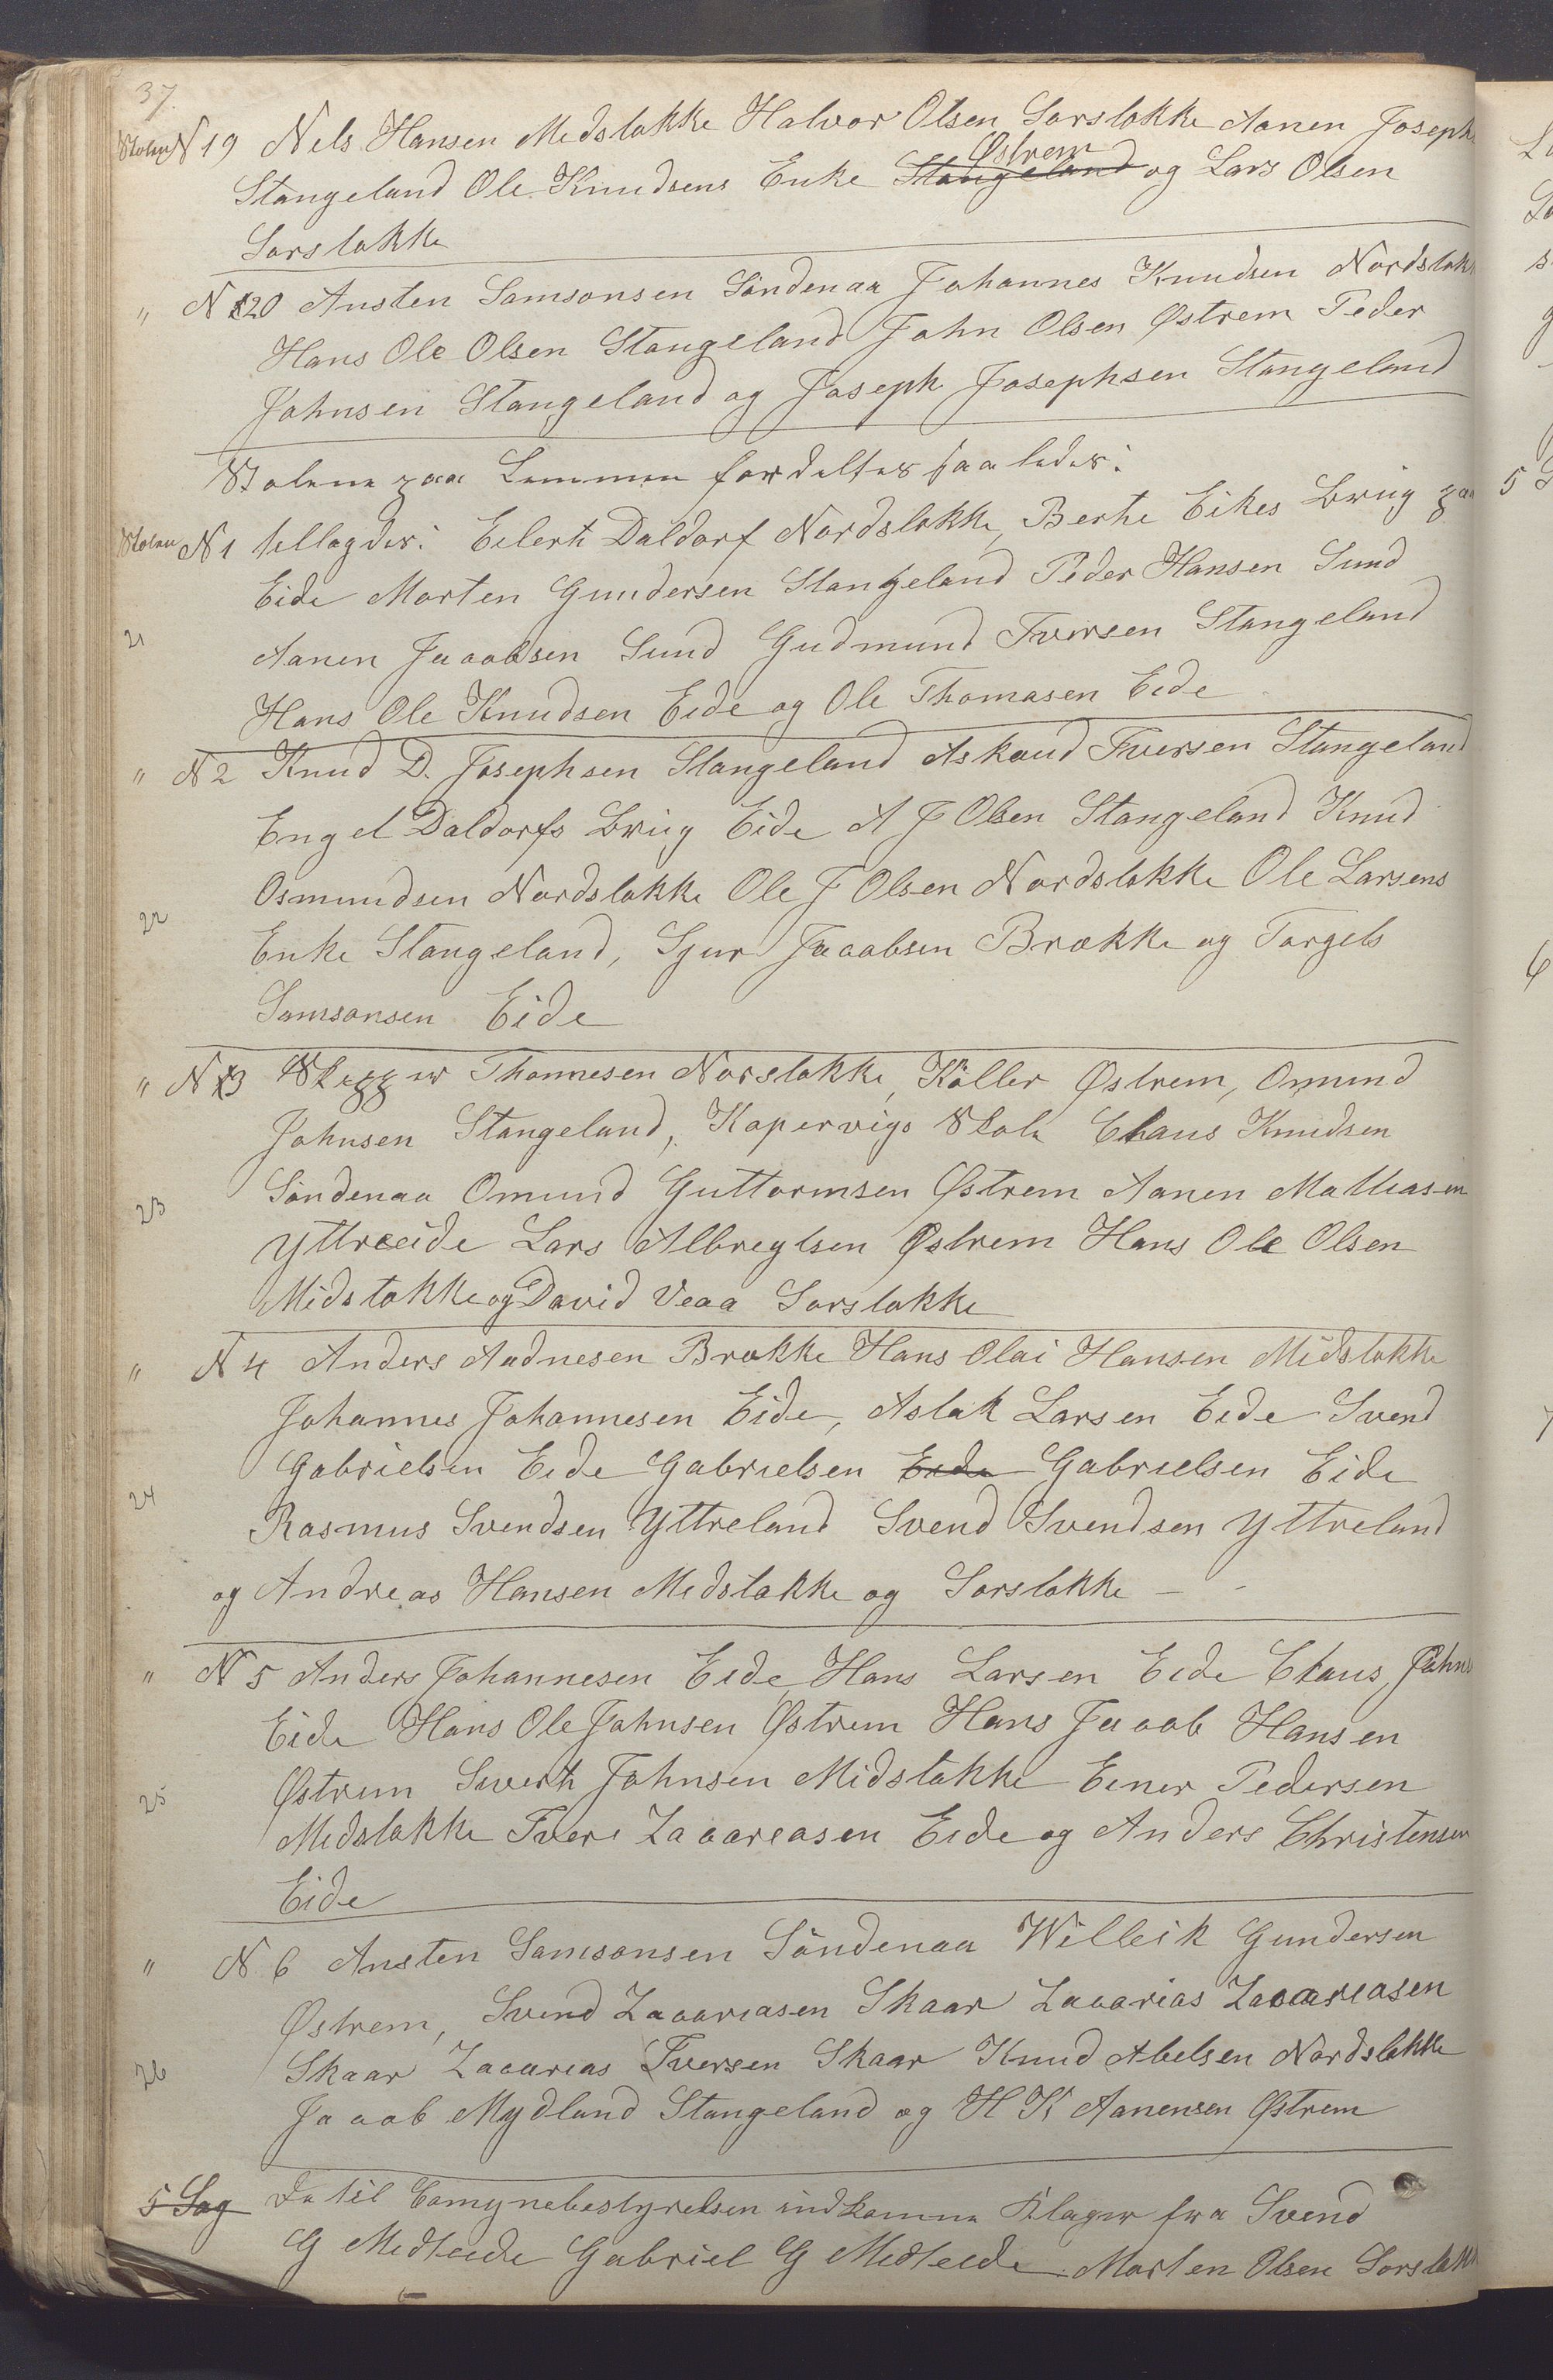 37.
Stolen N 19 Nels Hansen Medstokke Halvor Olsen Sorstokke Aanen Joseph
Østrem
Stangeland Ole Knudsens Enke Stangeland og Lars Olsen
Sorstokke
" N 20 Austen Samsonsen Söndenaa Johannes Knudsen Nordstokk
Hans Ole Olsen Stangeland John Olsen Østrem Peder
Johnsen Stangeland og Joseph Josephsen Stangeland
Stolene paa Lemmen fordeltes saaledes:
Stolen N 1 tillagdes: Eilert Daldorf Nordstokke, Berte Eikes Brug paa
Eide Morten Gundersen Stangeland Peder Hansen Sund
21 Aanen Jacobsen Sund Gudmund Iversen Stangeland
Hans Ole Knudsen Eide og Ole Thomasen Eide
" N 2 Knud D. Josephsen Stangeland Askoud Iversen Stangeland
Engel Daldorfs Brug Eide A J Olsen Stangeland Knud
Osmundsen Nordstokke Ole J Olsen Nordstokke Ole Larsens
22 Enke Stangeland, Sjur Jacobsen Brække og Torgels
Samsonsen Eide
" N 3 Skipper Thomesen Norstokke, Köller Østrem, Omund
Johnsen Stangeland, Kopervigs Skole Claus Knudsen
23 Söndenaa Omund Guttormsen Østrem Aanen Mathiasen
Yttreeide Lars Albregtsen Østrem Hans Ole Olsen
Midstokke og David Veaa Sorstokke
" N 4 Anders Aadnesen Brække Hans Olai Hansen Midstokke
Johannes Johannesen Eide, Aslak Larsen Eide Svend
Gabrielsen Eide Gabrielsen Eide Gabrielsen Eide
24 Rasmus Svendsen Yttreland Svend Svendsen Yttreland
og Andreas Hansen Medstokke og Sorstokke —
" N 5 Anders Johannesen Eide, Hans Larsen Eide Claus Johns
Eide Hans Ole Johnsen Østrem Hans Jacob Hansen
25 Østrem Sivert Johnsen Midstokke Einer Pedersen
Medstokke Iver Zacareasen Eide og Anders Christensen
Eide
" N. 6 Austen Samsonsen Söndenaa Willeik Gundersen
Østrem, Svend Zacariasen Skaar Zacarias Zacareasen
26 Skaar Zacarias Iversen Skaar Knud Abelsen Nordstokke
Jacob Mydland Stangeland og H K Aanensen Østrem
5 Sag Da til Comynebestyrelsen indkomne Klager fra Svend
G Medleeide Gabriel G Medleeide Morten Olsen Sorstokk